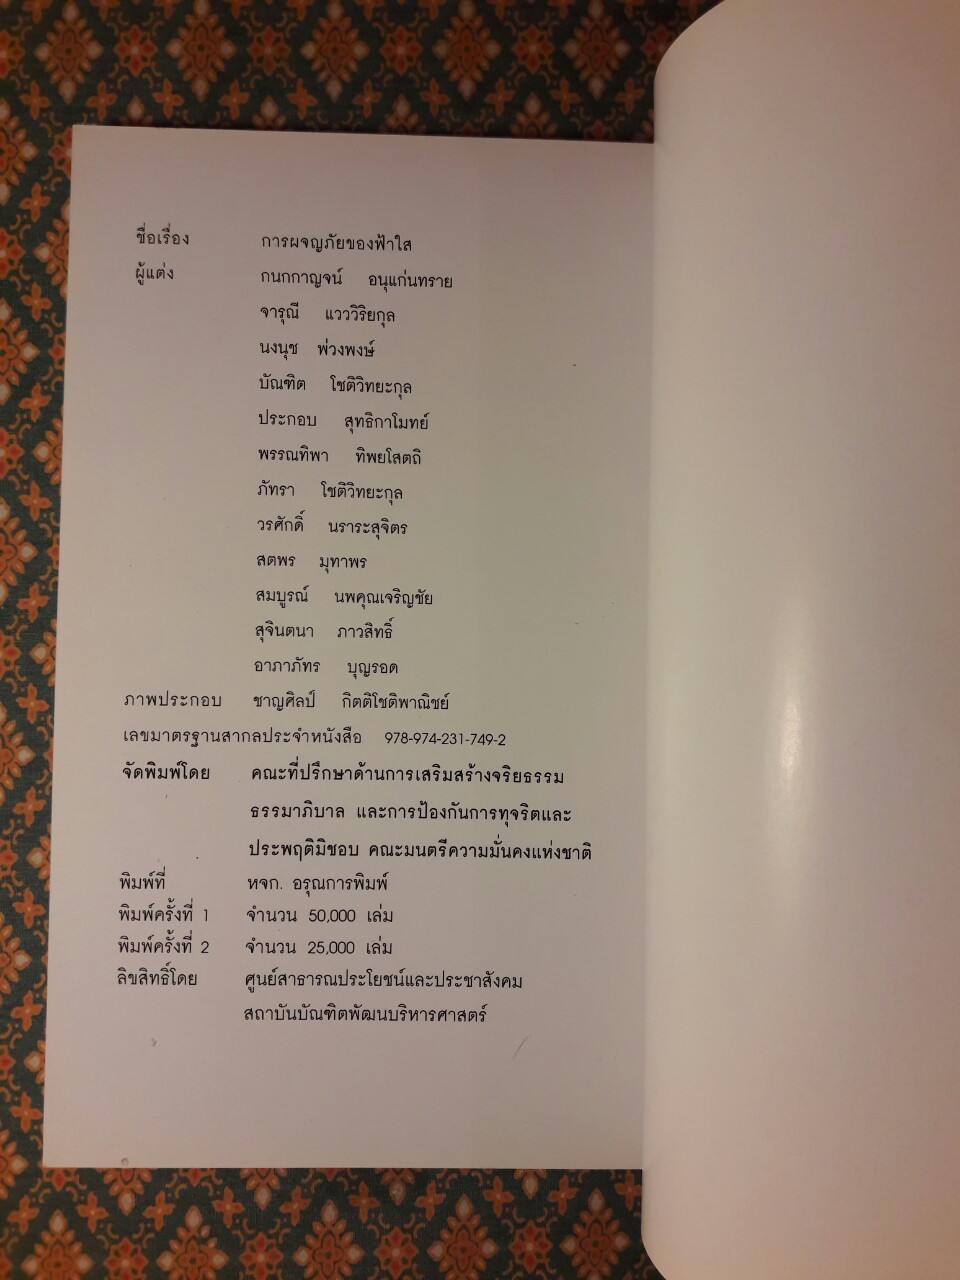 ชื่อเรื่อง การผจญภัยของฟ้าใส
ผู้แต่ง กนกกาญจน์ อนุแก่นทราย
จารุณี แวววิริยกุล
นงนุช พ่วงพงษ์
บัณฑิต โชติวิทยะกุล
ประกอบ สุทธิกาโมทย์
พรรณทิพา ทิพยโสตถิ
ภัทรา โชติวิทยะกุล
วรศักดิ์ นราระสุจิตร
สตพร มุทาพร
สมบูรณ์ นพคุณเจริญชัย
สุจินตนา ภาวสิทธิ์
อาภาภัทร บุญรอด
ภาพประกอบ ชาญศิลป์ กิตติโชติพาณิชย์
เลขมาตรฐานสากลประจำหนังสือ 978-974-231-749-2
จัดพิมพ์โดย คณะที่ปรึกษาด้านการเสริมสร้างจริยธรรม
ธรรมาภิบาล และการป้องกันการทุจริตและ
ประพฤติมิชอบ คณะมนตรีความมั่นคงแห่งชาติ
พิมพ์ที่ หจก. อรุณการพิมพ์
พิมพ์ครั้งที่ 1 จำนวน 50,000 เล่ม
พิมพ์ครั้งที่ 2 จำนวน 25,000 เล่ม
ลิขสิทธิ์โดย ศูนย์สาธารณประโยชน์และประชาสังคม
สถาบันบัณฑิตพัฒนบริหารศาสตร์